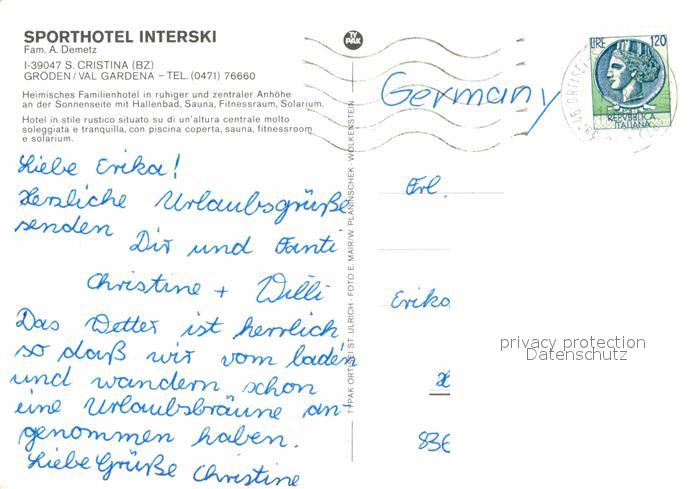 SPORTHOTEL INTERSKI
Fam. A. Demetz
I-39047 S. CRISTINA (BZ)
GRÖDEN / VAL GARDENA – TEL. (0471) 76660
Heimisches Familienhotel in ruhiger und zentraler Anhöhe
an der Sonnenseite mit Hallenbad, Sauna, Fitnessraum, Solarium.
Hotel in stile rustico situato su di un'altura centrale molto
soleggiata e tranquilla, con piscina coperta, sauna, fitnessroom
e solarium.
TY
PAK
Liebe Erika!
Herzliche Urlaubsgrüße
senden
Dir und Fanti
Christine + Willi
Das Wetter ist herrlich
so daß wir vom baden
und wandern schon
eine Urlaubsbräune an-
genommen haben.
Liebe Grüße Christine
TYPAK ORTISEI ST. ULRICH - FOTO E. MAIR/W. PLANINSCHEK - WOLKENSTEIN
Germany
LIRE 120
REPVBBLICA
ITALIANA
Frl.
Erika
836
privacy protection
Datenschutz